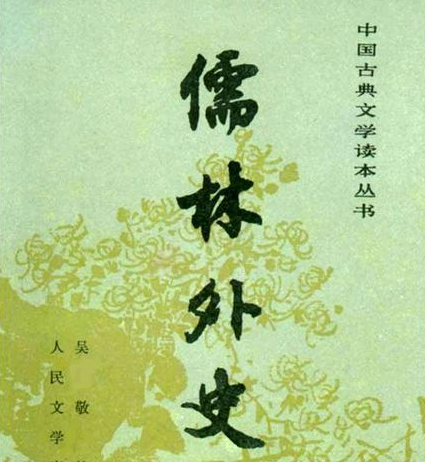 中国古典文学读本丛书
儒林外史
吴敬
人民文学